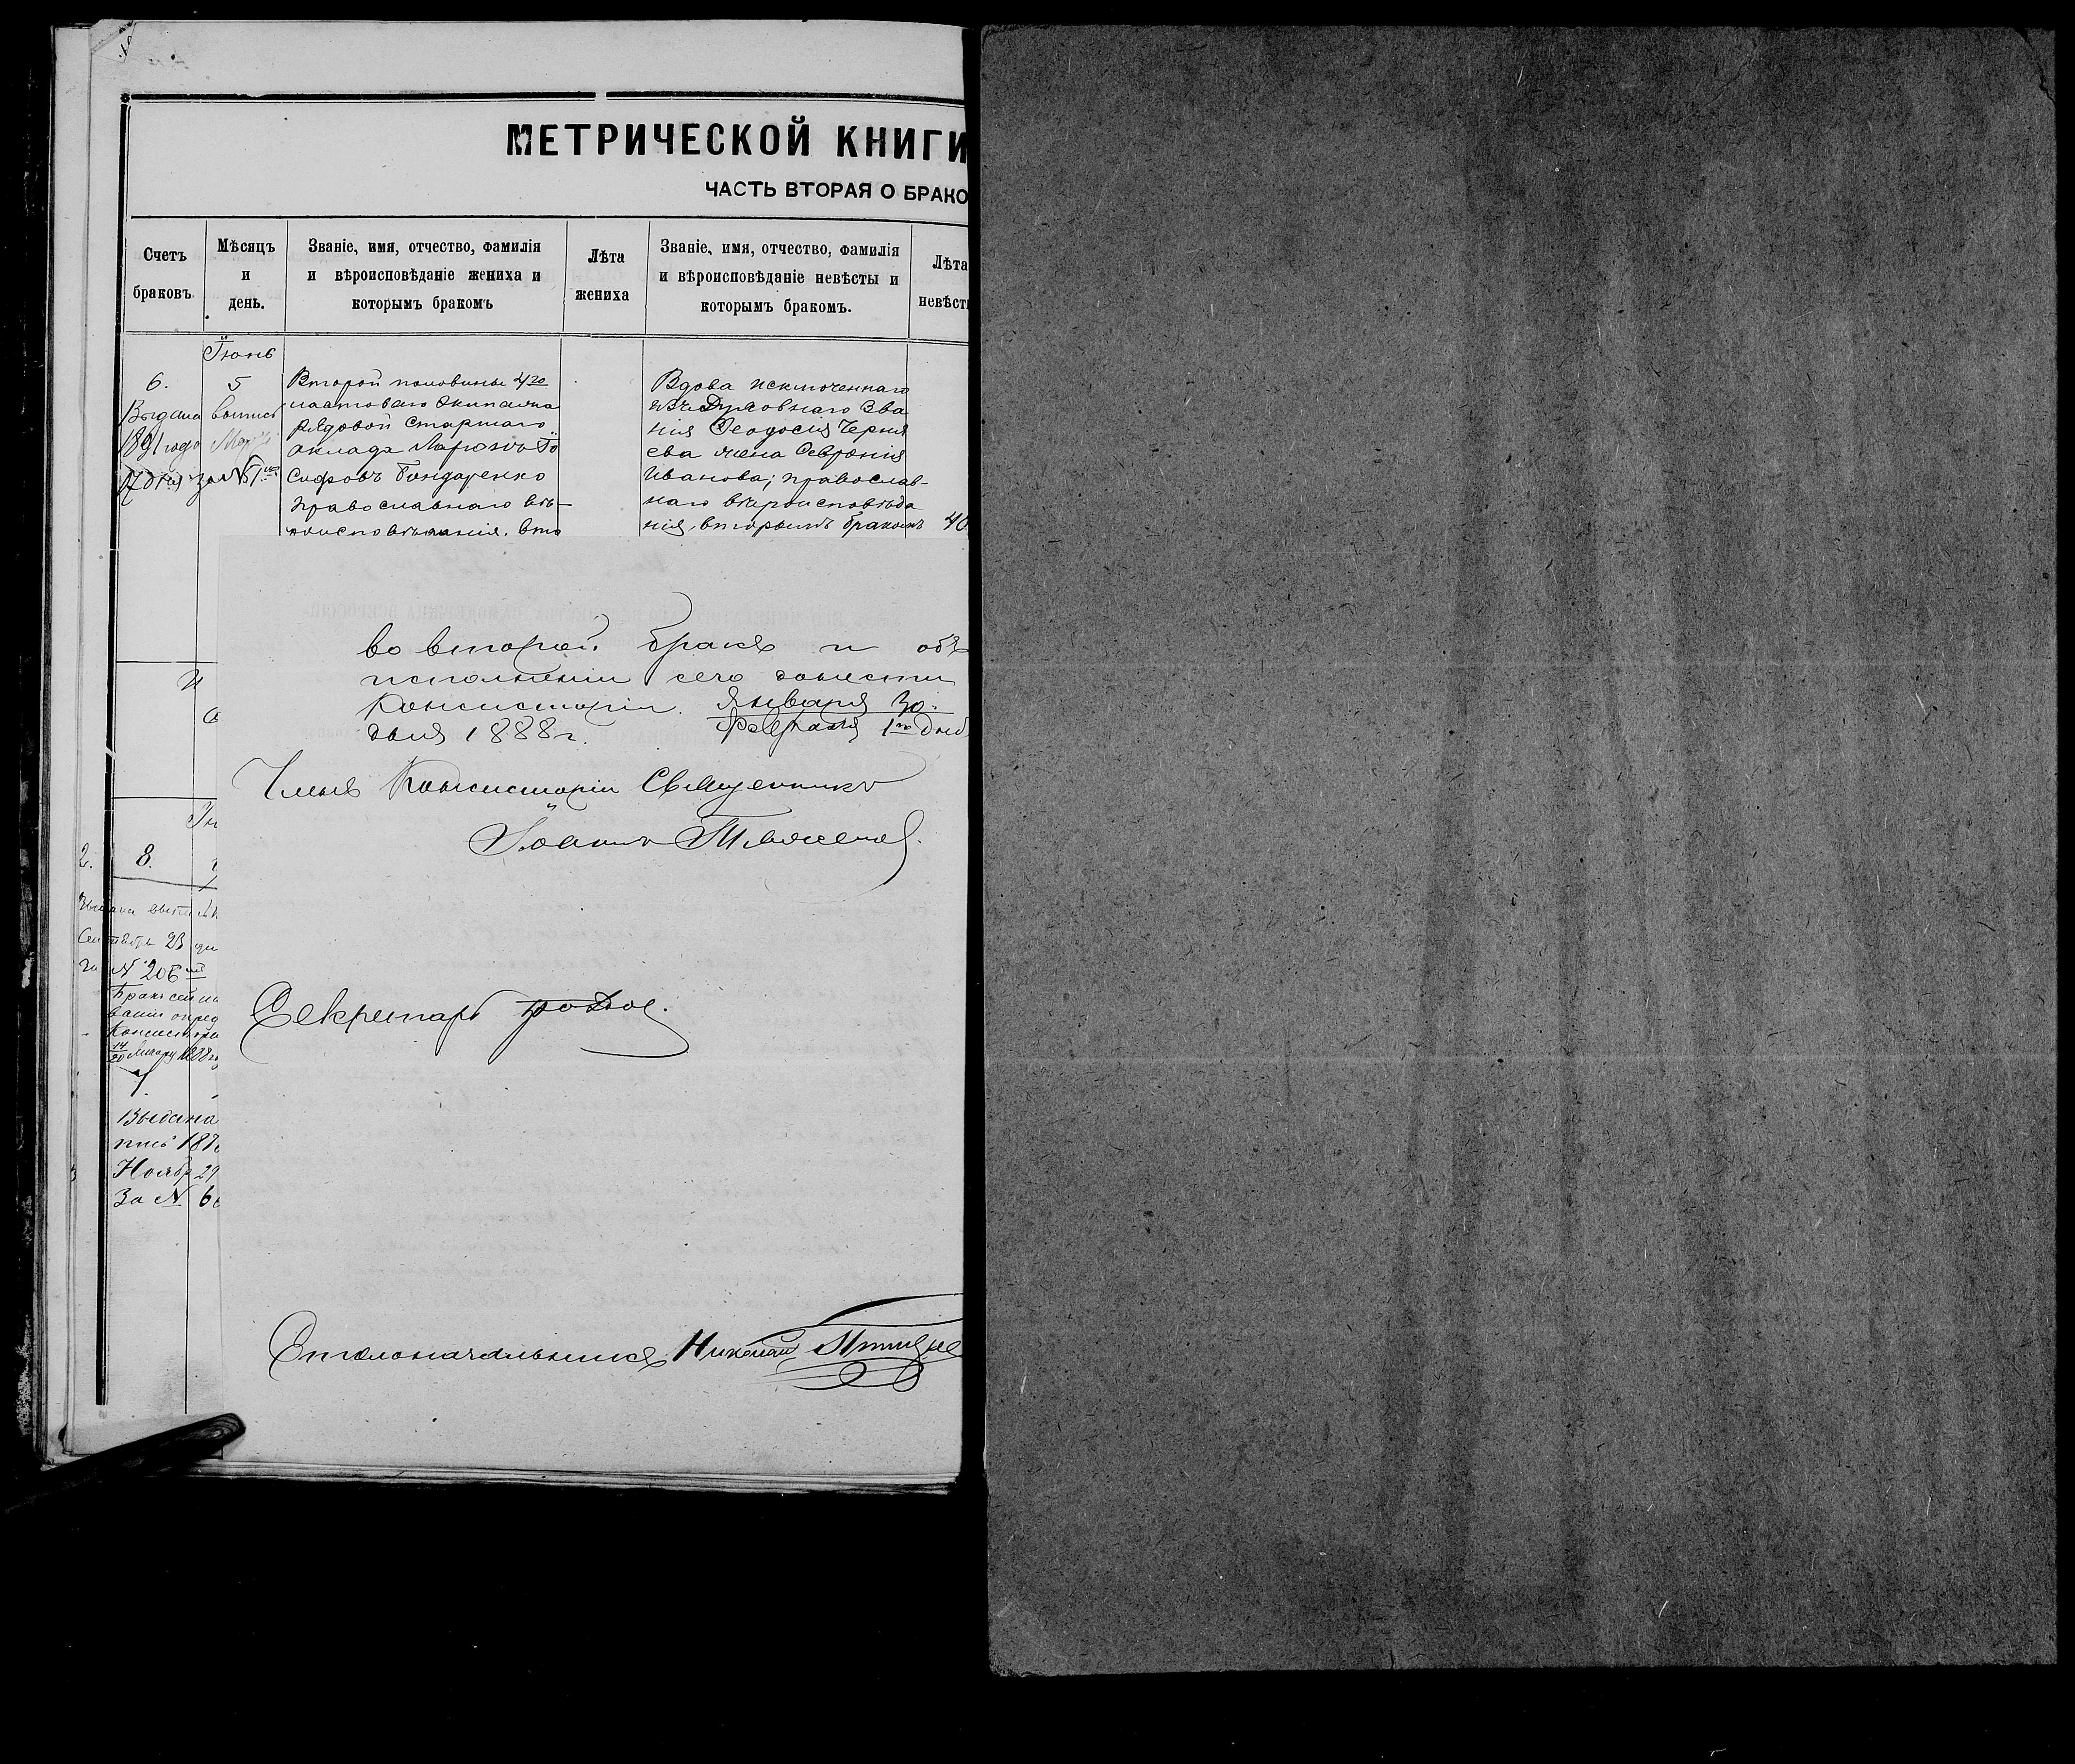 МЕТРИЧЕСКОЙ КНИГИ
ЧАСТЬ ВТОРАЯ О БРАКО
Счетъ браковъ.
Мѣсяцъ и день.
Званіе, имя, отчество, фамилія
и вѣроисповѣданіе жениха и
которымъ бракомъ
Лѣта жениха
Званіе, имя, отчество, фамилія
и вѣроисповѣданіе невѣсты и
которымъ бракомъ.
Лѣта невѣсты
Іюнь
6.
5
Выдана выпись
1891 года
17 дня за №
Второй половины 4го
ластоваго Экипажа
рядовой старшаго
оклада Ларіонъ Іо
сифовъ Бондаренко
православнаго вѣ-
роисповѣданія, вто
Вдова исключеннаго
изъ Духовнаго Зва
нія Ѳеодосія Черня
ева жена Евфонія
Иванова; православ-
наго вѣроисповѣда
нія, вторымъ бракомъ
40
во второй бракъ и объ
исполненіи сего донести
Консисторіи. Января 30
Февраля 1го дня
дня 1888 г.
Членъ Консисторіи Священникъ
Іоаннъ
Секретарь
Столоначальникъ Николай
8.
2.
Сентября 23
за № 206
Бракъ сей
Консисторіи
Выдана
пись 187
Ноябр 29
За № 6